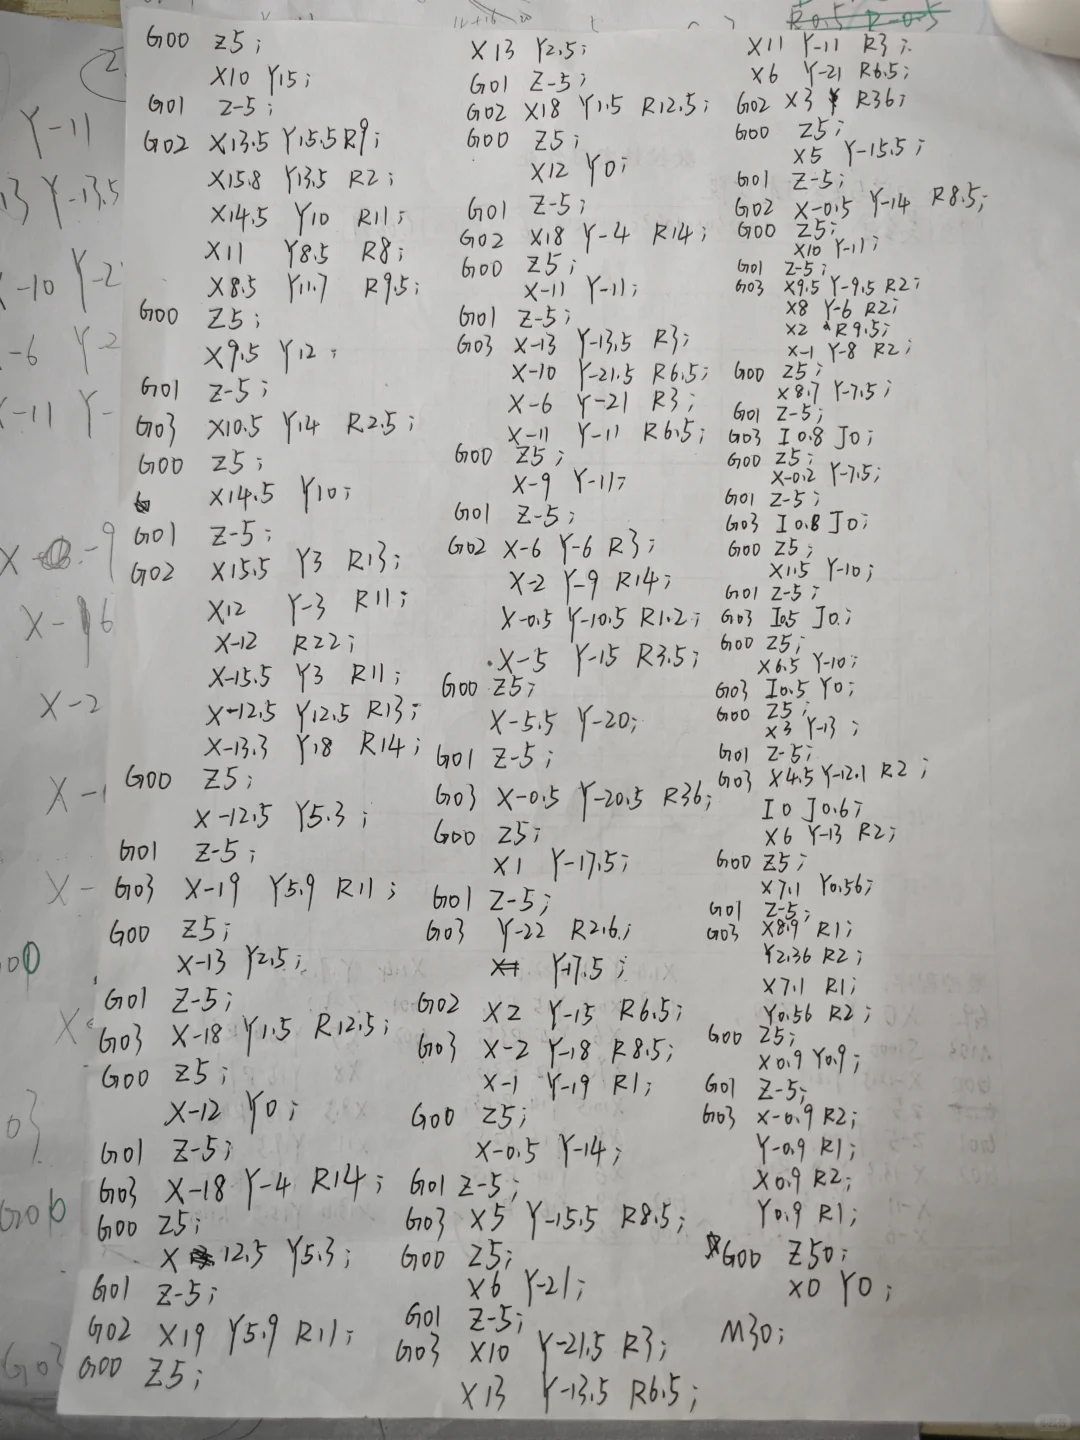 G00 Z5;
X10 Y15;
G01 Z-5;
G02 X13.5 Y15.5 R9;
X15.8 Y13.5 R2;
X14.5 Y10 R11;
X11 Y8.5 R8;
X8.5 Y11.7 R9.5;
G00 Z5;
X9.5 Y12;
G01 Z-5;
G03 X10.5 Y14 R2.5;
G00 Z5;
X14.5 Y10;
G01 Z-5;
G02 X15.5 Y3 R13;
X12 Y-3 R11;
X-12 R22;
X-15.5 Y3 R11;
X-12.5 Y12.5 R13;
X-13.3 Y18 R14;
G00 Z5;
X-12.5 Y5.3;
G01 Z-5;
G03 X-19 Y5.9 R11;
G00 Z5;
X-13 Y2.5;
G01 Z-5;
G03 X-18 Y1.5 R12.5;
G00 Z5;
X-12 Y0;
G01 Z-5;
G03 X-18 Y-4 R14;
G00 Z5;
X 12.5 Y5.3;
G01 Z-5;
G02 X19 Y5.9 R11;
G00 Z5;
X13 Y2.5;
G01 Z-5;
G02 X18 Y1.5 R12.5;
G00 Z5;
X12 Y0;
G01 Z-5;
G02 X18 Y-4 R14;
G00 Z5;
X-11 Y-11;
G01 Z-5;
G03 X-13 Y-13.5 R3;
X-10 Y-21.5 R6.5;
X-6 Y-21 R3;
X-11 Y-11 R6.5;
G00 Z5;
X-9 Y-11;
G01 Z-5;
G02 X-6 Y-6 R3;
X-2 Y-9 R14;
X-0.5 Y-10.5 R1.2;
X-5 Y-15 R3.5;
G00 Z5;
X-5.5 Y-20;
G01 Z-5;
G03 X-0.5 Y-20.5 R36;
G00 Z5;
X1 Y-17.5;
G01 Z-5;
G03 Y-22 R2.6;
Y-17.5;
G02 X2 Y-15 R6.5;
G03 X-2 Y-18 R8.5;
X-1 Y-19 R1;
G00 Z5;
X-0.5 Y-14;
G01 Z-5;
G03 X5 Y-15.5 R8.5;
G00 Z5;
X6 Y-21;
G01 Z-5;
G03 X10 Y-21.5 R3;
X13 Y-13.5 R6.5;
X11 Y-11 R3;
X6 Y-21 R6.5;
G02 X3 R36;
G00 Z5;
X5 Y-15.5;
G01 Z-5;
G02 X-0.5 Y-14 R8.5;
G00 Z5;
X10 Y-11;
G01 Z-5;
G03 X9.5 Y-9.5 R2;
X8 Y-6 R2;
X2 R9.5;
X-1 Y-8 R2;
G00 Z5;
X8.7 Y-7.5;
G01 Z-5;
G03 I0.8 J0;
G00 Z5;
X-0.2 Y-7.5;
G01 Z-5;
G03 I0.8 J0;
G00 Z5;
X1.5 Y-10;
G01 Z-5;
G03 I0.5 J0;
G00 Z5;
X6.5 Y-10;
G03 I0.5 Y0;
G00 Z5;
X3 Y-13;
G01 Z-5;
G03 X4.5 Y-12.1 R2;
I0 J0.6;
X6 Y-13 R2;
G00 Z5;
X7.1 Y0.56;
G01 Z-5;
G03 X8.9 R1;
Y2.36 R2;
X7.1 R1;
Y0.56 R2;
G00 Z5;
X0.9 Y0.9;
G01 Z-5;
G03 X-0.9 R2;
Y-0.9 R1;
X0.9 R2;
Y0.9 R1;
G00 Z50;
X0 Y0;
M30;